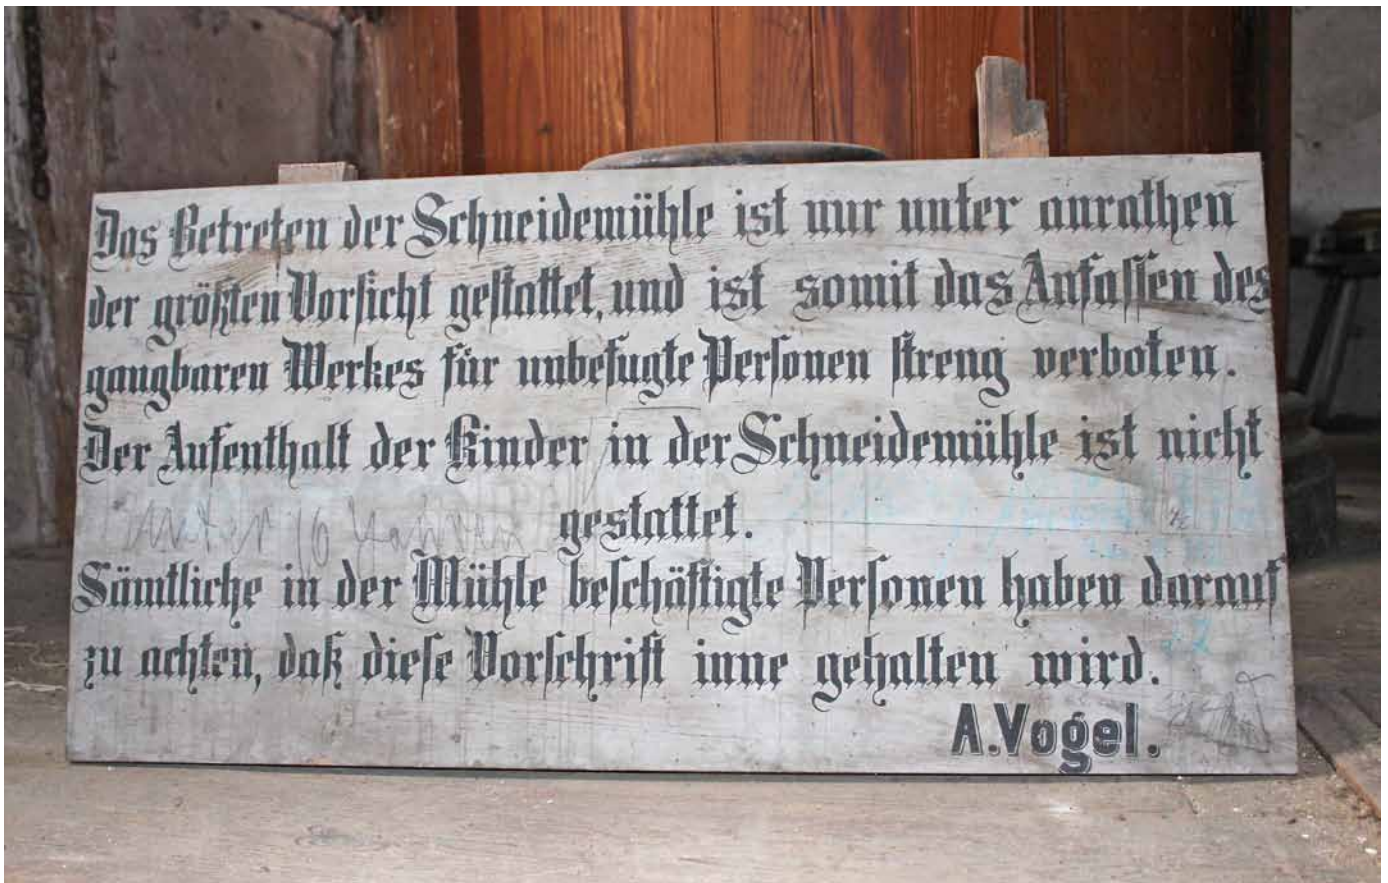 Das Betreten der Schneidemühle ist nur unter anrathen
der größten Vorsicht gestattet, und ist somit das Anfassen des
gangbaren Werkes für unbefugte Personen streng verboten.
Der Aufenthalt der Kinder in der Schneidemühle ist nicht
unter 16 Jahren gestattet.
Sämtliche in der Mühle beschäftigte Personen haben darauf
zu achten, daß diese Vorschrift inne gehalten wird.
A. Vogel.